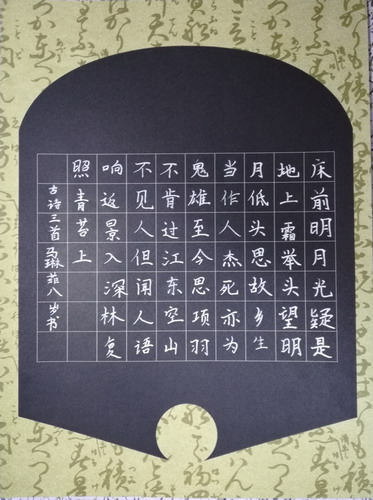 床前明月光疑是
地上霜举头望明
月低头思故乡生
当作人杰死亦为
鬼雄至今思项羽
不肯过江东空山
不见人但闻人语
响返景入深林复
照青苔上
古诗三首马琳八岁书